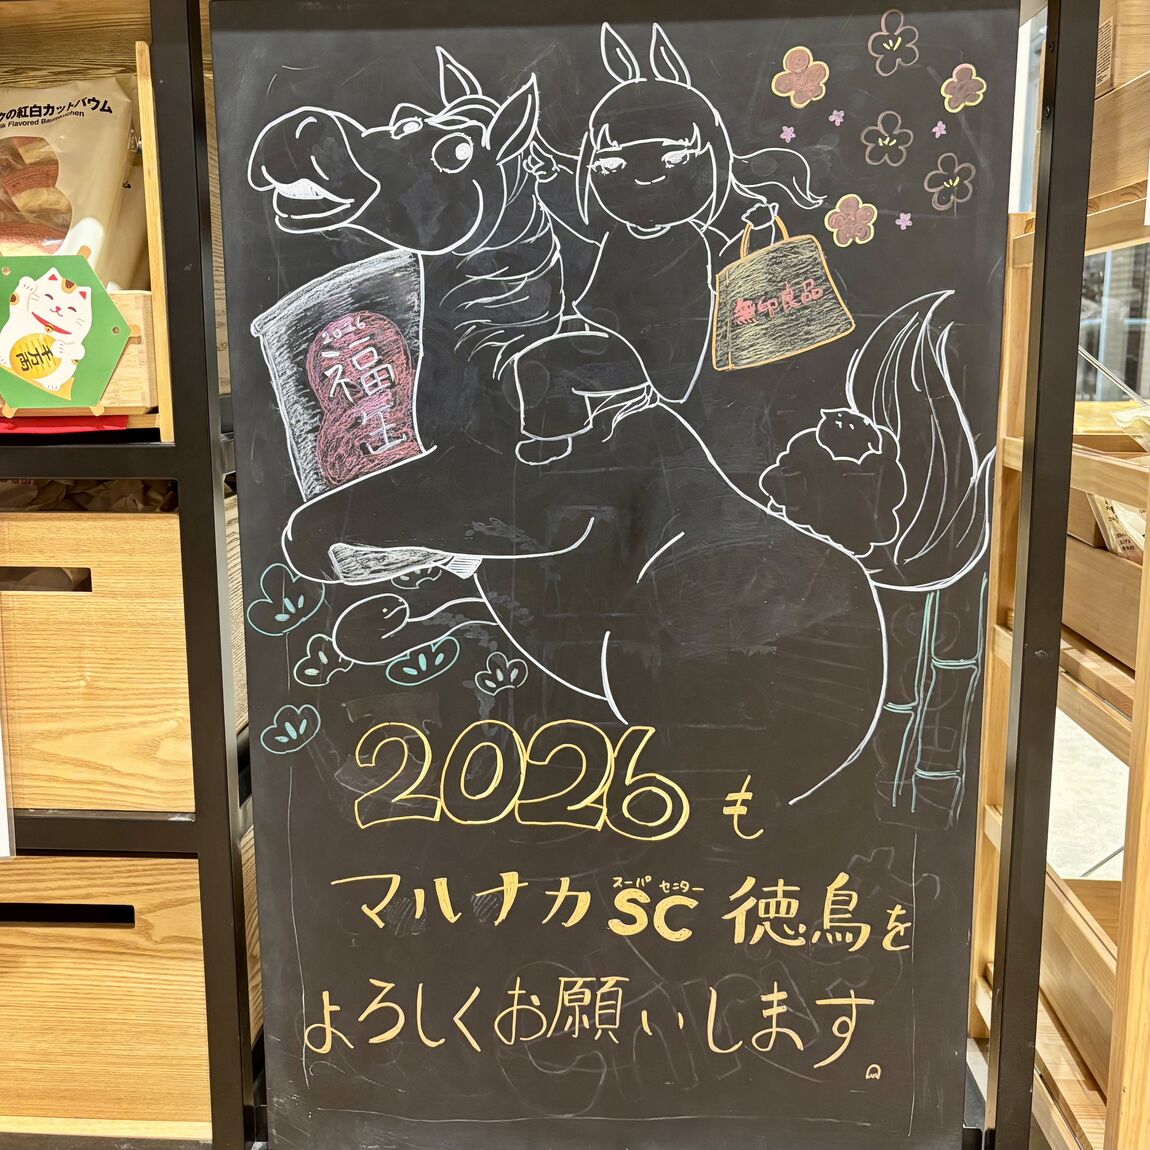 クの紅白カットバウム
lk Flavored Baumkuchen
千万両
無印良品
2026
福缶
2026も
マルナカ
スーパーセンター
SC 徳島を
よろしくお願いします。